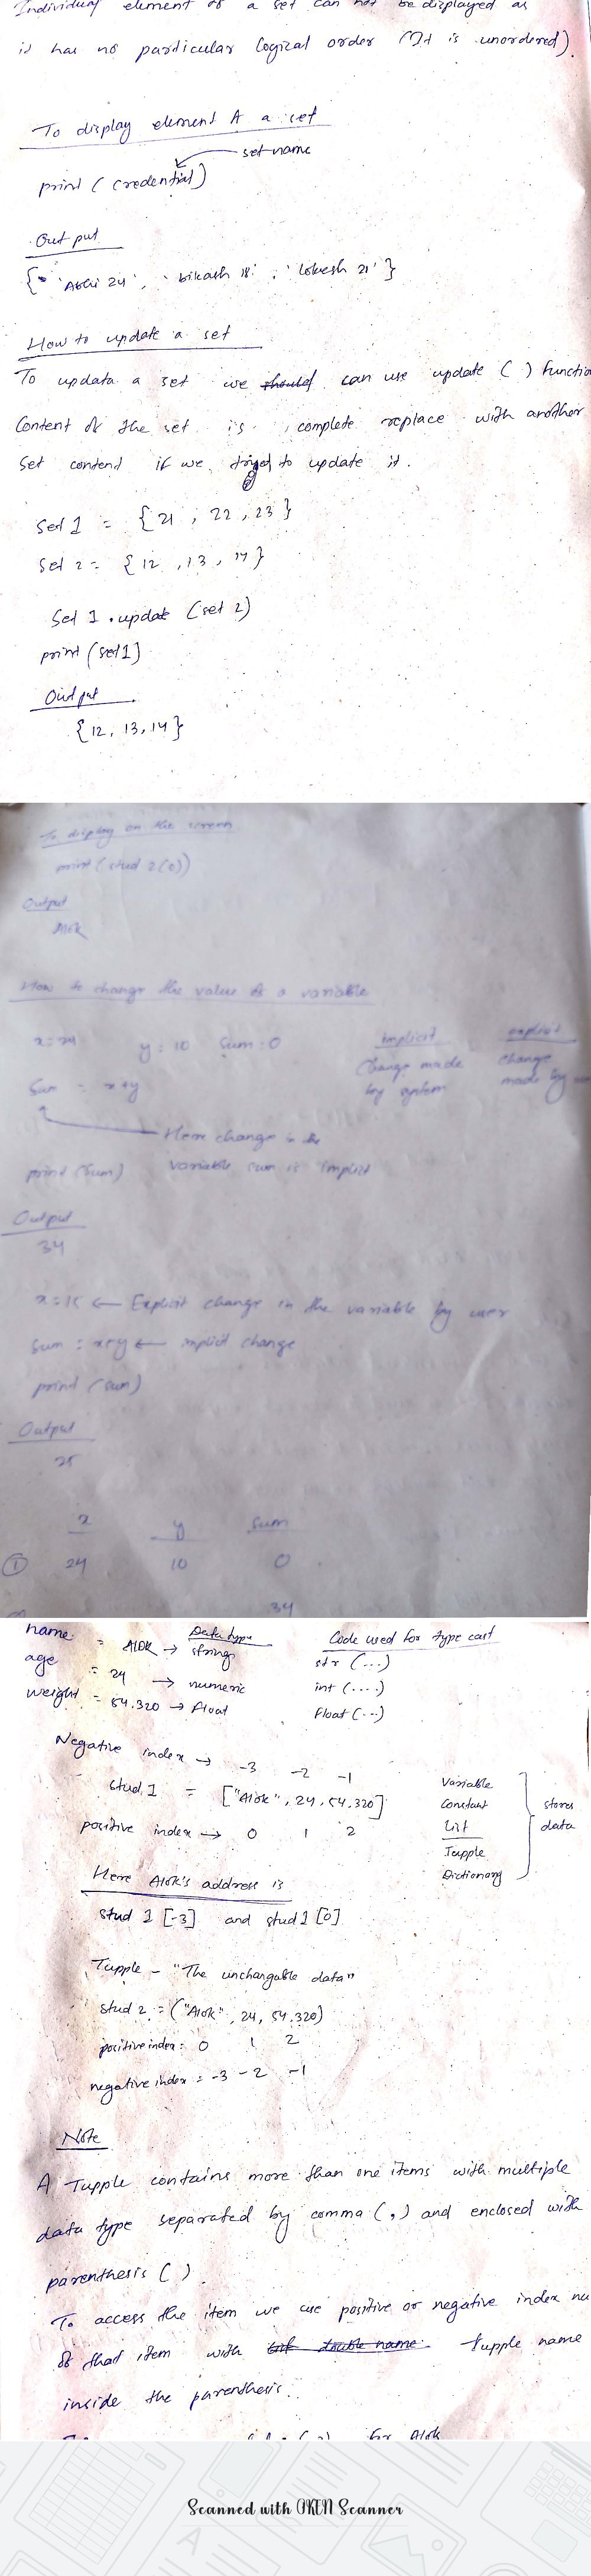 Individual element of a set can not be displayed as
it has no particular logical order (It is unordered).
To display element A a set
set name
print ( credential )
Output
{ 'Abhi 24', 'bikash 18', 'lokesh 21' }
How to update a set
To updata a set we should can use update ( ) functio
Content of the set is complete replace with another
set content if we tryed to update it.
Set 1 = { 21 , 22 , 23 }
Set 2 = { 12 , 13 , 14 }
Set 1 . update (set 2)
print (set1)
Output
{12, 13, 14}
To display on the screen
print ( stud 2(0))
Output
Alok
How to change the value of a variable
x = 24 y = 10 Sum = 0 implicit explicit
Change made change
Sum = x+y by system made by
Here change in the
print (Sum) variable sum is implict
Output
34
x = 15 ← Explicit change in the variable by user
Sum = x+y ← implict change
print (sum)
Output
25
x y sum
① 24 10 0
34
name = Alok → string Data type Code used for type cast
str (...)
age = 24 → numeric int (....)
weight = 54.320 → float float (...)
Negative index → -3 -2 -1
stud 1 = ["Alok", 24, 54.320]
positive index → 0 1 2
Variable
Constant
List
Tupple
Dictionary
stores
data
Here Alok's address is
stud 1 [-3] and stud 1 [0]
Tupple - "The unchangable data"
stud 2 = ("Alok", 24, 54.320)
positive index : 0 1 2
negative index = -3 -2 -1
Note
A Tupple contains more than one items with multiple
data type separated by comma (,) and enclosed with
parenthesis ( ).
To access the item we use positive or negative index nu
of that item with tupple name
inside the parenthesis.
for Alok
Scanned with OKEN Scanner